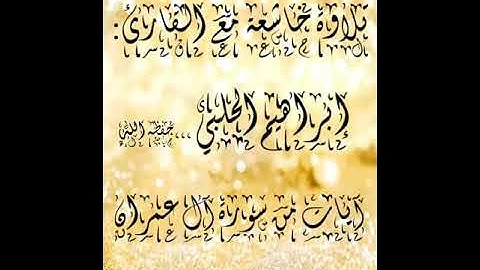 تلاوة خاشعة مع القارئ:
إبراهيم الحلبي ،،، حفظه الله
آيات من سورة آل عمران